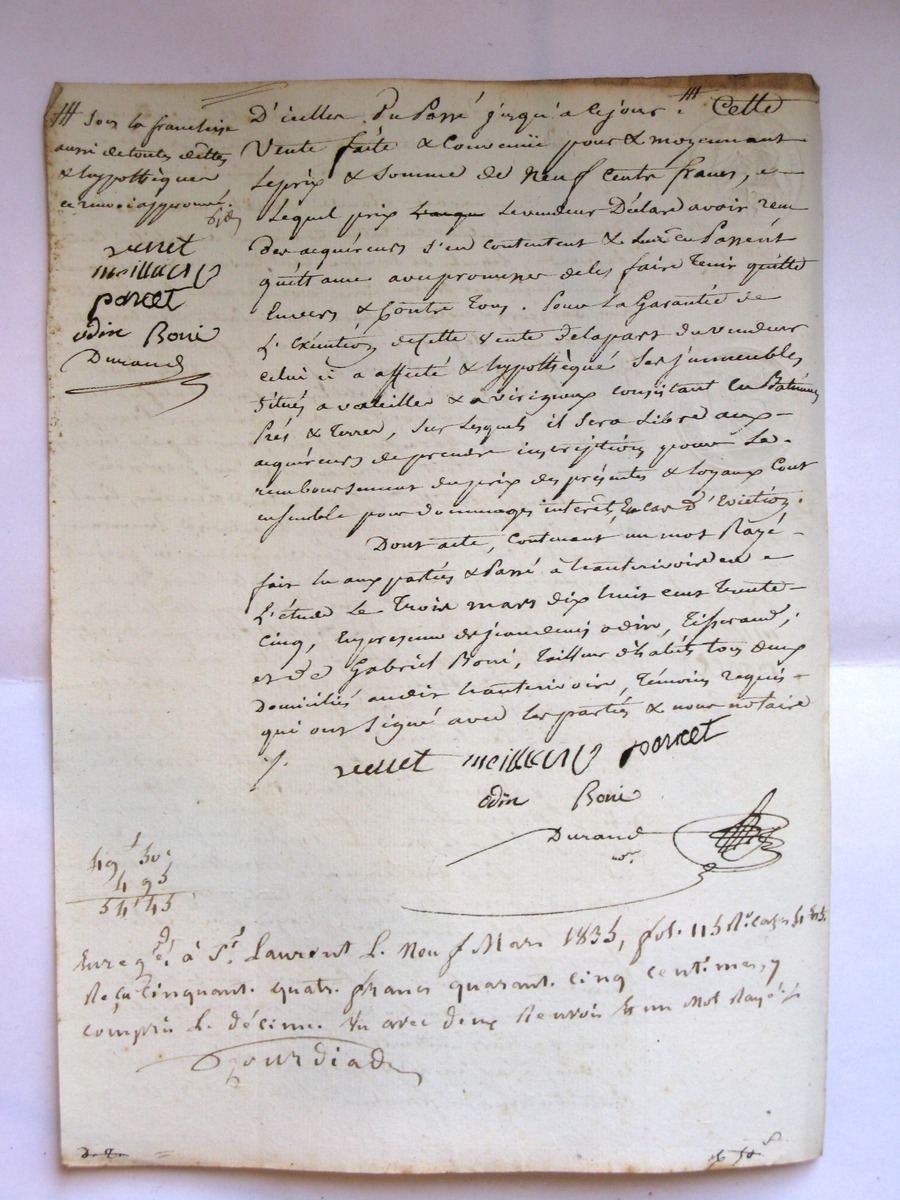 # Sous la franchise
aussi de toutes dettes
& hypothèques
ce renvoi approuvé.
verset
meilland
poncet
odin Boni
Durand
D'icelles Du Passé jusqu'a ce jour. # Cette
Vente faite & Convenüe pour & moyennant
le prix & Somme de Neuf Cents francs,
Lequel prix Le vendeur Déclare avoir reçu
des acquéreurs s'en contentent & en Passent
quittance avec promesse de les faire tenir quitte
Envers & Contre Tous. Pour la Garantie de
L'Exécution de Cette vente de la part du vendeur
celui ci a affecté & hypothèqué Ses immeubles
Situés a & a virigneux consistant en Batimens
Prés & terres, Sur lesquels il Sera Libre aux
acquéreurs de prendre inscription pour Le
remboursement du prix des présentes & loyaux Cout
ensemble pour dommages intérêts En cas D'Eviction.
Dont acte, Contenant un mot Rayé
fait lu aux parties & Passé à hauterivoire en
L'étude Le Trois mars dix huit cent trente
Cinq, En presence de jean denis odin, Tisserand,
et de Gabriel Boni, tailleur d'habits tous deux
Domiciliés audit hauterivoire, témoins requis
qui ont Signé avec les parties & nous notaire
verset meilland poncet
odin Boni
Durand
nre.
49f 50c
4 95
54f 45
Enregé. à St. Laurent L. Neuf Mars 1835, fol. 115 Ro. cases
Reçu Cinquant. quatr. francs quarant. cinq centimes, y
compris L. décime. Vu avec deux Renvois & un Mot Rayé